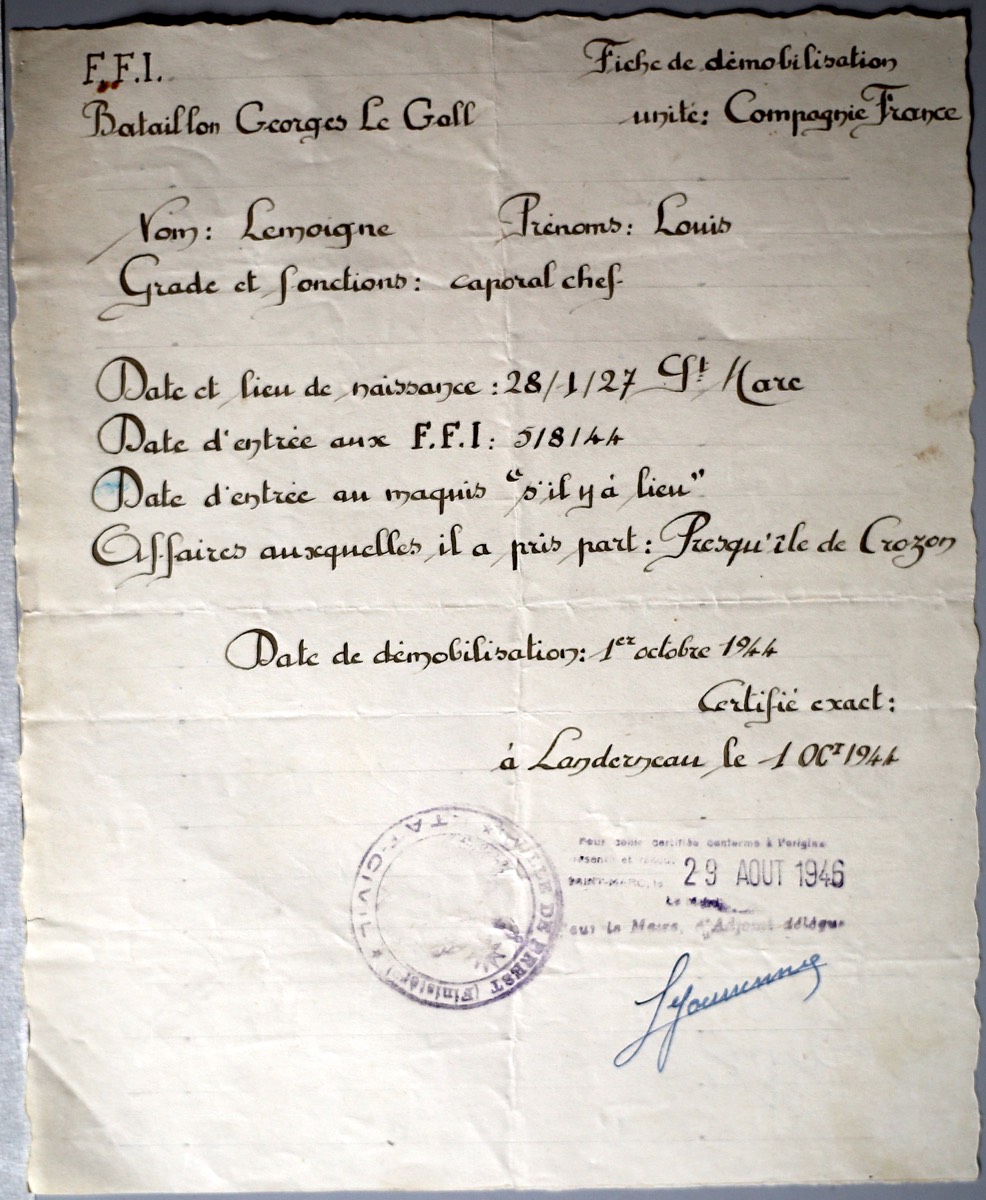 F.F.I.
Fiche de démobilisation
Bataillon Georges Le Gall
unité: Compagnie France
Nom: Lemoigne Prénoms: Louis
Grade et fonctions: caporal chef
Date et lieu de naissance: 28/1/27 St Marc
Date d'entrée aux F.F.I: 5/8/44
Date d'entrée au maquis "s'il y à lieu"
Affaires auxquelles il a pris part: Presqu'île de Crozon
Date de démobilisation: 1er octobre 1944
Certifié exact:
à Landerneau le 1 OCT 1944
VILLE DE BREST (Finistère)
ETAT-CIVIL
Pour copie certifiée conforme à l'origina
et
SAINT-MARC, le 29 AOUT 1946
Le Maire
our le Maire, l'Adjoint délégué